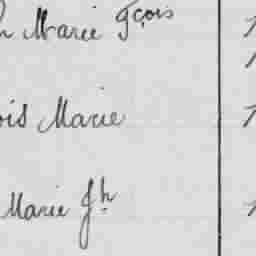 h Marie Fçois
ois Marie
Marie Jh